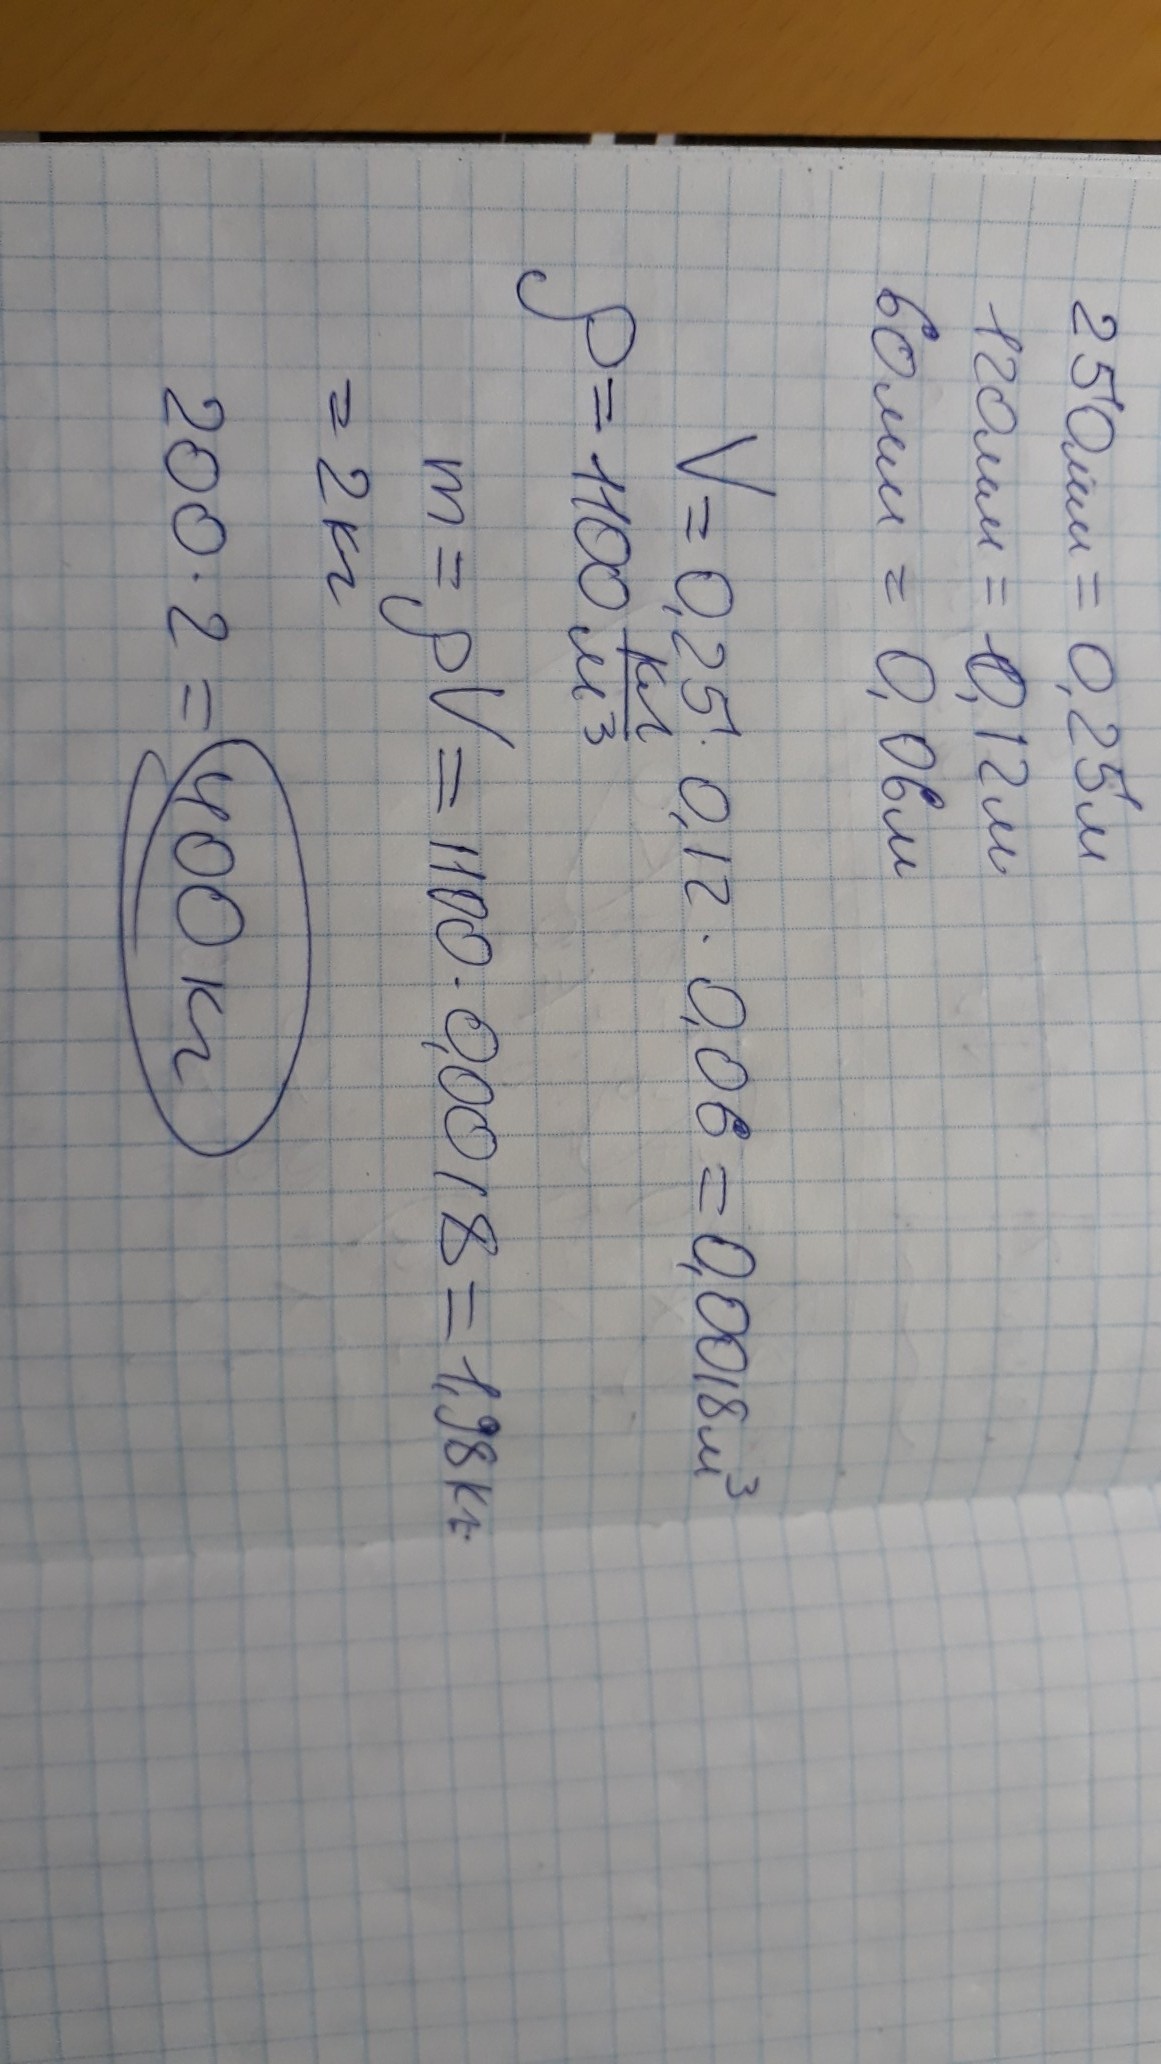 250мм = 0,25м
120мм = 0,12м
60мм = 0,06м
V = 0,25 · 0,12 · 0,06 = 0,0018м³
ρ = 1100 кг/м³
m = ρV = 1100 · 0,0018 = 1,98кг
= 2кг
200 · 2 = 400кг